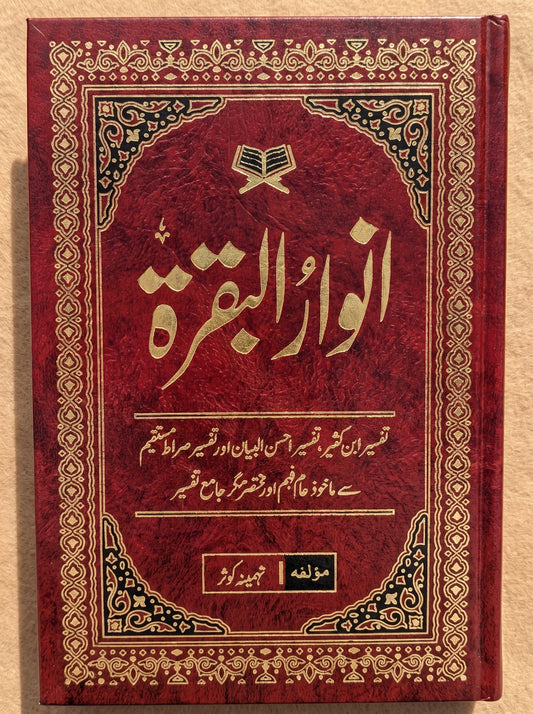 انوارُ البقرۃ
تفسیر ابن کثیر، تفسیر احسن البیان اور تفسیر صراط مستقیم
سے ماخوذ عام فہم اور مختصر مگر جامع تفسیر
مؤلفہ تہمینہ کوثر